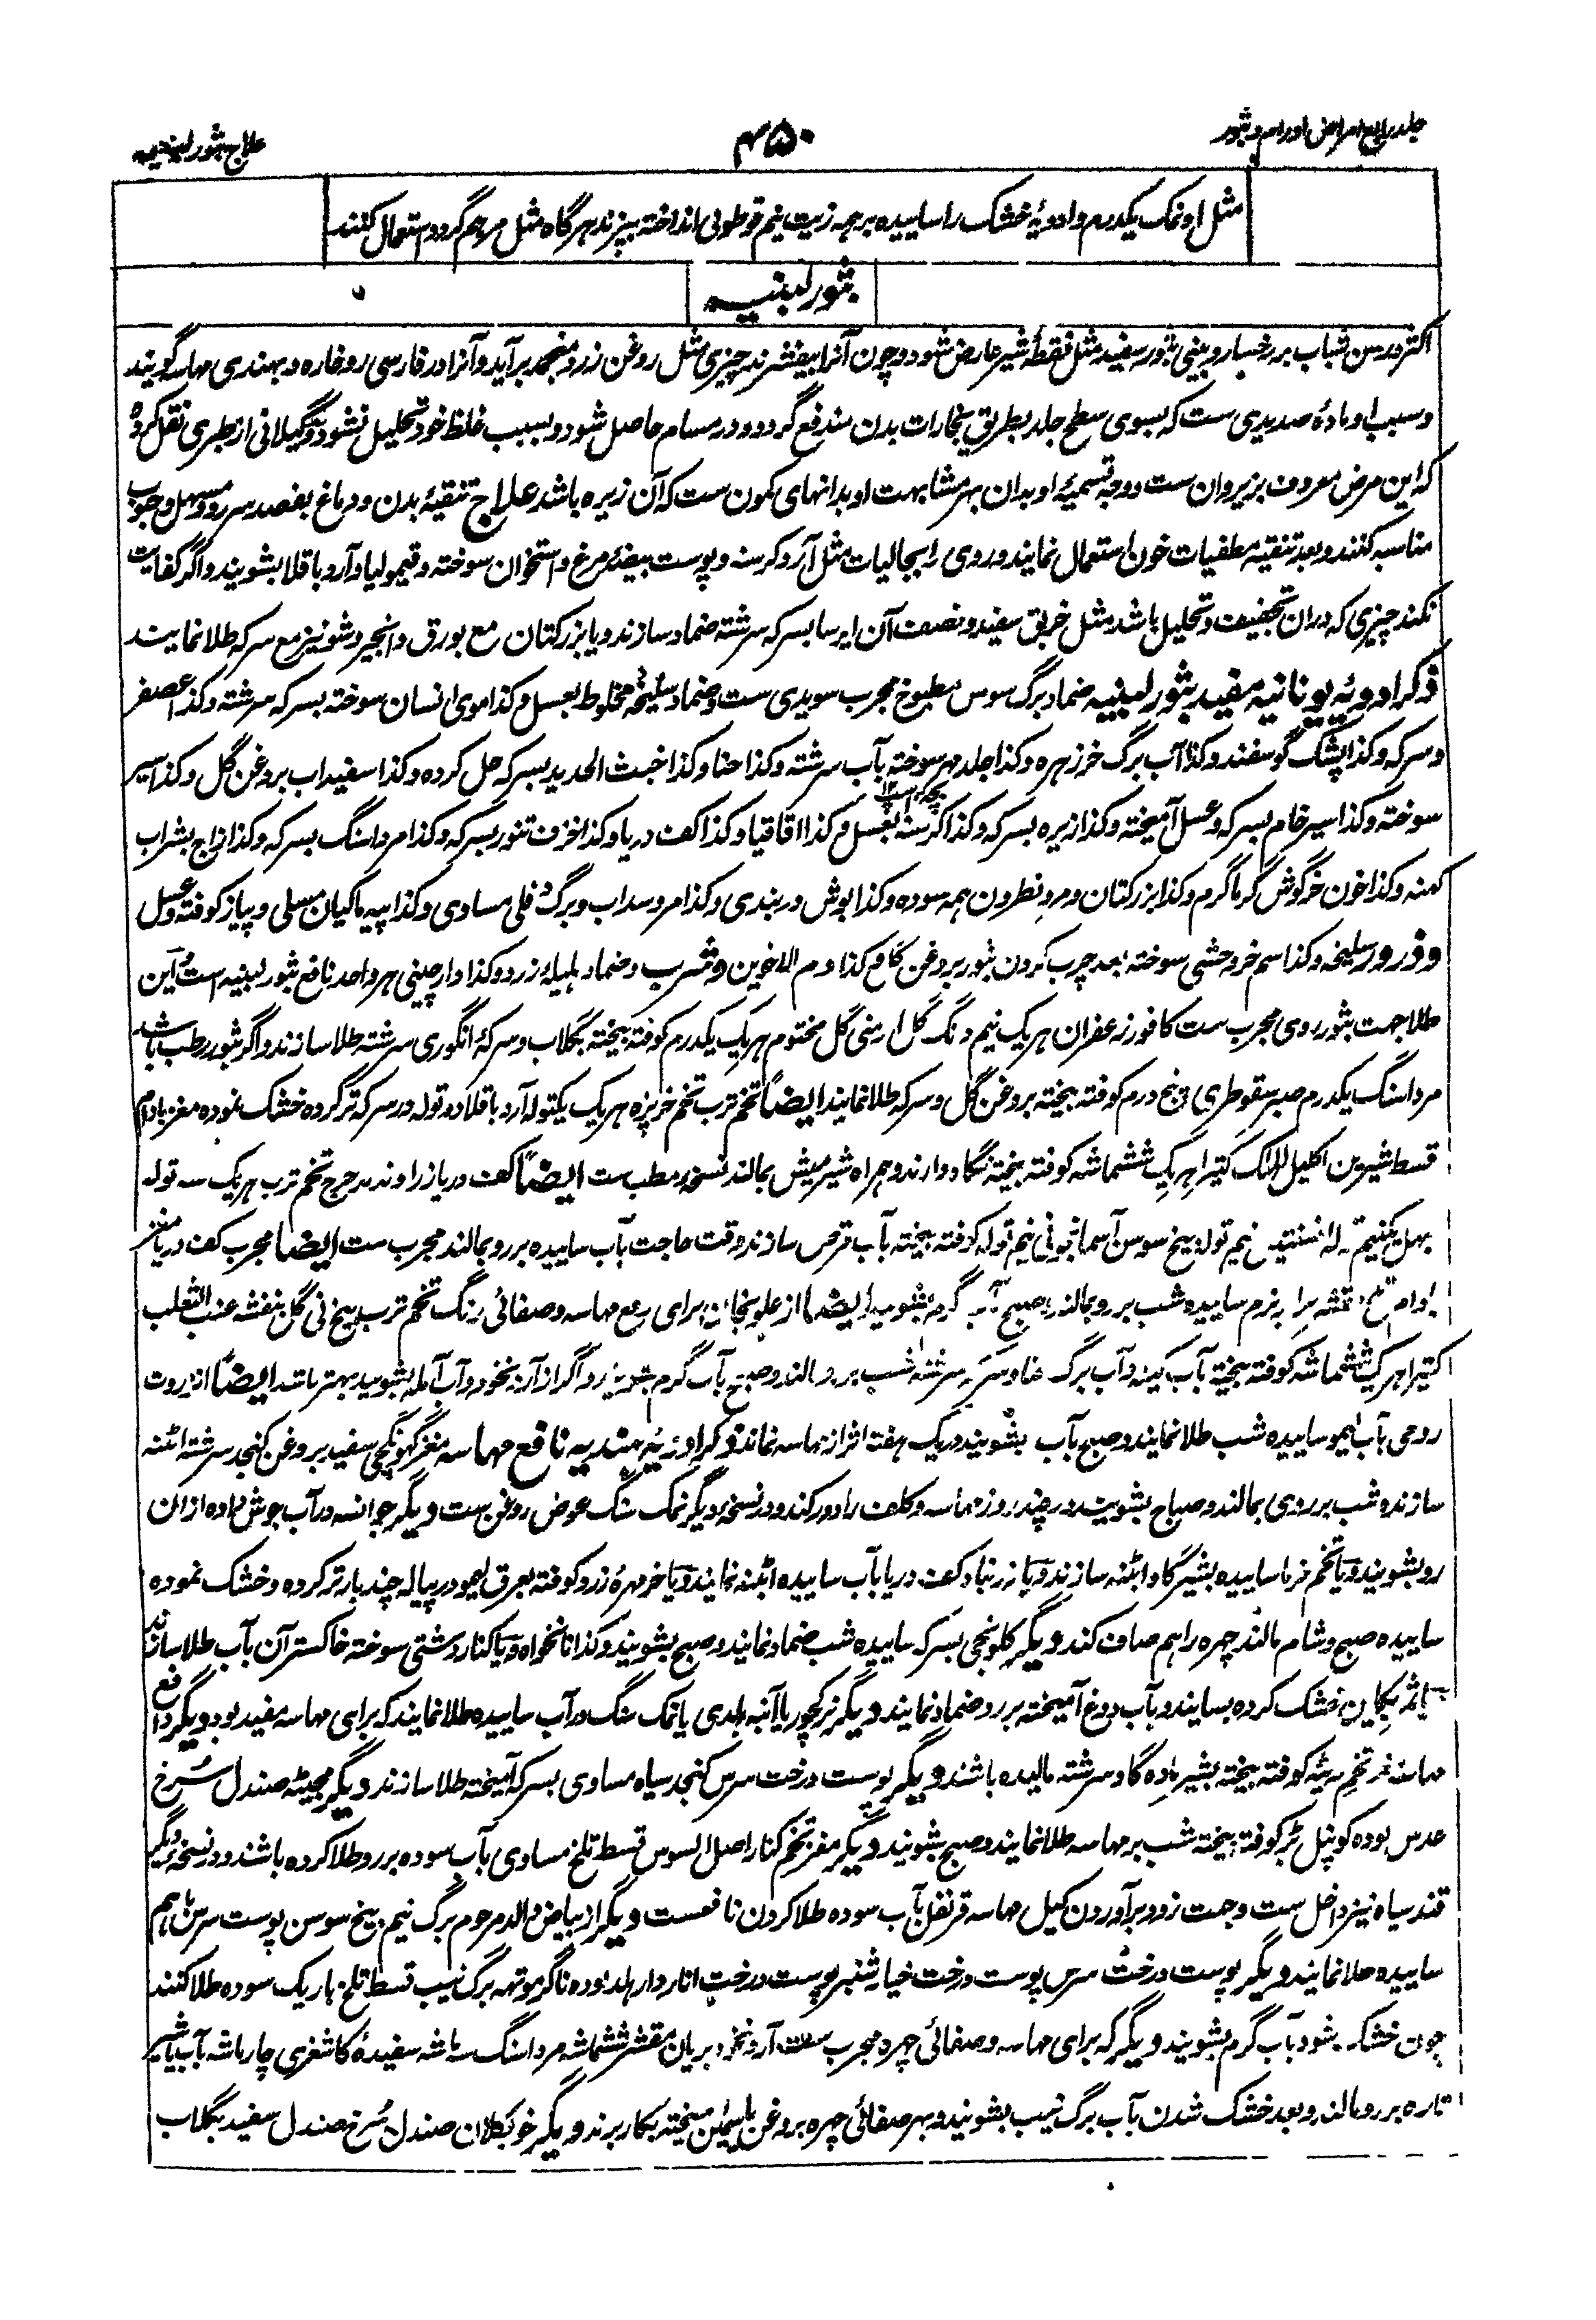 جلد رابع امراض اورام و بثور
۴۵۰
علاج بثور لبنیه
مثل او نمک یکدرم و ادویهٔ خشک را ساییده بر همه زیت نیم قوطولی انداخته بپزند هرگاه مثل مرهم گردد استعمال کنند
بثور لبنیه
اکثر در سن شباب بر رخسار و بینی بثور سفید مثل نقطهٔ شیر عارض شود و چون آنرا بیفشرند چیزی مثل روغن زرد منجمد برآید و آنرا در فارسی روخاره و بهندی مهاسه گویند
و سبب او مادهٔ صدیدی ست که بسوی سطح جلد بطریق بخارات بدن مندفع گردد و در مسام حاصل شود و بسبب غلظ خود تحلیل نشود و گیلانی از طبری نقل کرده
که این مرض معروف بزیروان ست و وجه تسمیهٔ او بدان بهر مشابهت او بدانهای کمون ست که آن زیره باشد علاج تنقیهٔ بدن و دماغ بفصد سررو و مسهل و حبوب
مناسبه کنند و بعد تنقیه مطفیات خون استعمال نمایند و روی را بجالیات مثل آرد کرسنه و پوست بیضهٔ مرغ و استخوان سوخته و قیمولیا و آرد باقلا بشویند و اگر کفایت
نکند چیزی که دران تجفیف و تحلیل باشد مثل خربق سفید و نصف آن ایرسا بسرکه سرشته ضماد سازند و یا بزرکتان مع بورق و انجیر و شونیز مع سرکه طلا نمایند
ذکر ادویهٔ یونانیه مفید بثور لبنیه ضماد برگ سوس مطبوخ مجرب سویدی ست و ضماد سلیخه مخلوط بعسل و کذا موی انسان سوخته بسرکه سرشته و کذا عصفر
و سرکه و کذا پشک گوسفند و کذا آب برگ خرزهره و کذا جلد سوخته بآب سرشته و کذا حنا و کذا خبث الحدید بسرکه حل کرده و کذا سفیداب بروغن گل و کذا سیر
سوخته و کذا سیر خام بسرکه و عسل آمیخته و کذا زیره بسرکه و کذا کرسنه بعسل و کذا اقاقیا و کذا کف دریا و کذا خزف تنور بسرکه و کذا مرداسنگ بسرکه و کذا زاج بشراب
کهنه و کذا خون خرگوش گرماگرم و کذا بزرکتان و مر و نطرون همه سوده و کذا بوش دربندی و کذا مر و سداب و برگ دفلی مساوی و کذا پیه ماکیان مسلی و پیاز کوفته و عسل
و ذرور سلیخه و کذا سم خر وحشی سوخته بعد چرب کردن بثور بروغن کاهو کذا دم الاخوین و شرب و ضماد هلیلهٔ زرد و کذا دارچینی هر واحد نافع بثور لبنیه است این
طلا جهت بثور روی مجرب ست کافور زعفران هر یک نیم دنگ گل ارمنی گل مختوم هر یک یکدرم کوفته بیخته بگلاب و سرکهٔ انگوری سرشته طلا سازند و اگر بثور رطب باشد
مرداسنگ یکدرم صبر سقوطری پنج درم کوفته بیخته بروغن گل و سرکه طلا نمایند ایضاً تخم ترب تخم خرپزه هر یک یکتوله آرد باقلا دو توله در سرکه تر کرده خشک نموده مغز بادام
قسط شیرین اکلیل الملک کتیرا هر یک ششماشه کوفته بیخته نگاهدارند و همراه شیر میش بمالند نسخه مطب ست ایضاً کف دریا زراوند مدحرج تخم ترب هر یک سه توله
نیم توله بیخ سوسن آسمانجونی نیم توله کوفته بیخته بآب قرص سازند وقت حاجت بآب ساییده بر رو بمالند مجرب ست ایضاً مجرب کف دریا مغز
ساییده شب بر رو بمالند صبح بآب گرم بشویند ایضاً از علویخان برای رفع مهاسه و صفائی رنگ تخم ترب بیخ نی گل بنفشه عنب الثعلب
کتیرا هر یک ششماشه کوفته بیخته بآب کینه و آب برگ حنا و سرکه سرشته شب بر رو مالند و صبح بآب گرم بشویند و اگر از آرد نخود و آب آمله بشویند بهتر باشد ایضاً انزروت
روحی بآب لیمو ساییده شب طلا نمایند و صبح بآب بشویند در یک هفته اثر از مهاسه نماند ذکر ادویهٔ هندیه نافع مهاسه مغز گهونگچی سفید بروغن کنجد سرشته ابٹنه
سازند و شب بر روی بمالند و صباح بشویند در چند روز مهاسه و کلف را دور کند و در نسخه دیگر نمک سنگ عوض روغن ست دیگر جوانسه در آب جوش داده ازان
رو بشویند و یا تخم خرما ساییده بشیر گاو ابٹنه سازند و یا زرنباد کف دریا بآب ساییده ابٹنه نمایند و یا خرمهرهٔ زرد کوفته بعرق لیمو در پیاله چند بار تر کرده و خشک نموده
ساییده صبح و شام مالند چهره را هم صاف کند دیگر کلونجی بسرکه ساییده شب ضماد نمایند و صبح بشویند و کذا نانخواه و یا کنار دشتی سوخته خاکستر آن بآب طلا سازند
خشک کرده بسایند و بآب دوغ آمیخته بر رو ضماد نمایند دیگر نرکچور یا آنبه هلدی یا نمک سنگ در آب ساییده طلا نمایند که برای مهاسه مفید بود دیگر دافع
مهاسه مغز تخم کوفته بیخته بشیر ماده گاو سرشته مالیده باشند دیگر پوست درخت سرس کنجد سیاه مساوی بسرکه آمیخته طلا سازند دیگر مجیٹه صندل سرخ
عدس لوده کوپل بڑ کوفته بیخته شب بر مهاسه طلا نمایند و صبح بشویند دیگر مغز تخم کنار اصل السوس قسط تلخ مساوی بآب سوده بر رو طلا کرده باشند و در نسخه دیگر
قند سیاه نیز داخل ست و جهت زود برآوردن کیل مهاسه قرنفل بآب سوده طلا کردن نافعست دیگر از بیاض والد مرحوم برگ نیم بیخ سوسن پوست سرس باهم
ساییده طلا نمایند دیگر پوست درخت سرس پوست درخت خیارشنبر پوست درخت انار دارهلد لوده ناگرموتهه برگ نیب قسط تلخ باریک سوده طلا کنند
چون خشک شود بآب گرم بشویند دیگر که برای مهاسه و صفائی چهره مجرب ست آرد نخود بریان مقشر ششماشه مرداسنگ سه ماشه سفیدهٔ کاشغری چار ماشه بآب یا شیر
تازه بر رو مالند و بعد خشک شدن بآب برگ نیب بشویند و بهر صفائی چهره بروغن یاسمین آمیخته بکار برند دیگر خوبکلان صندل سرخ صندل سفید بگلاب